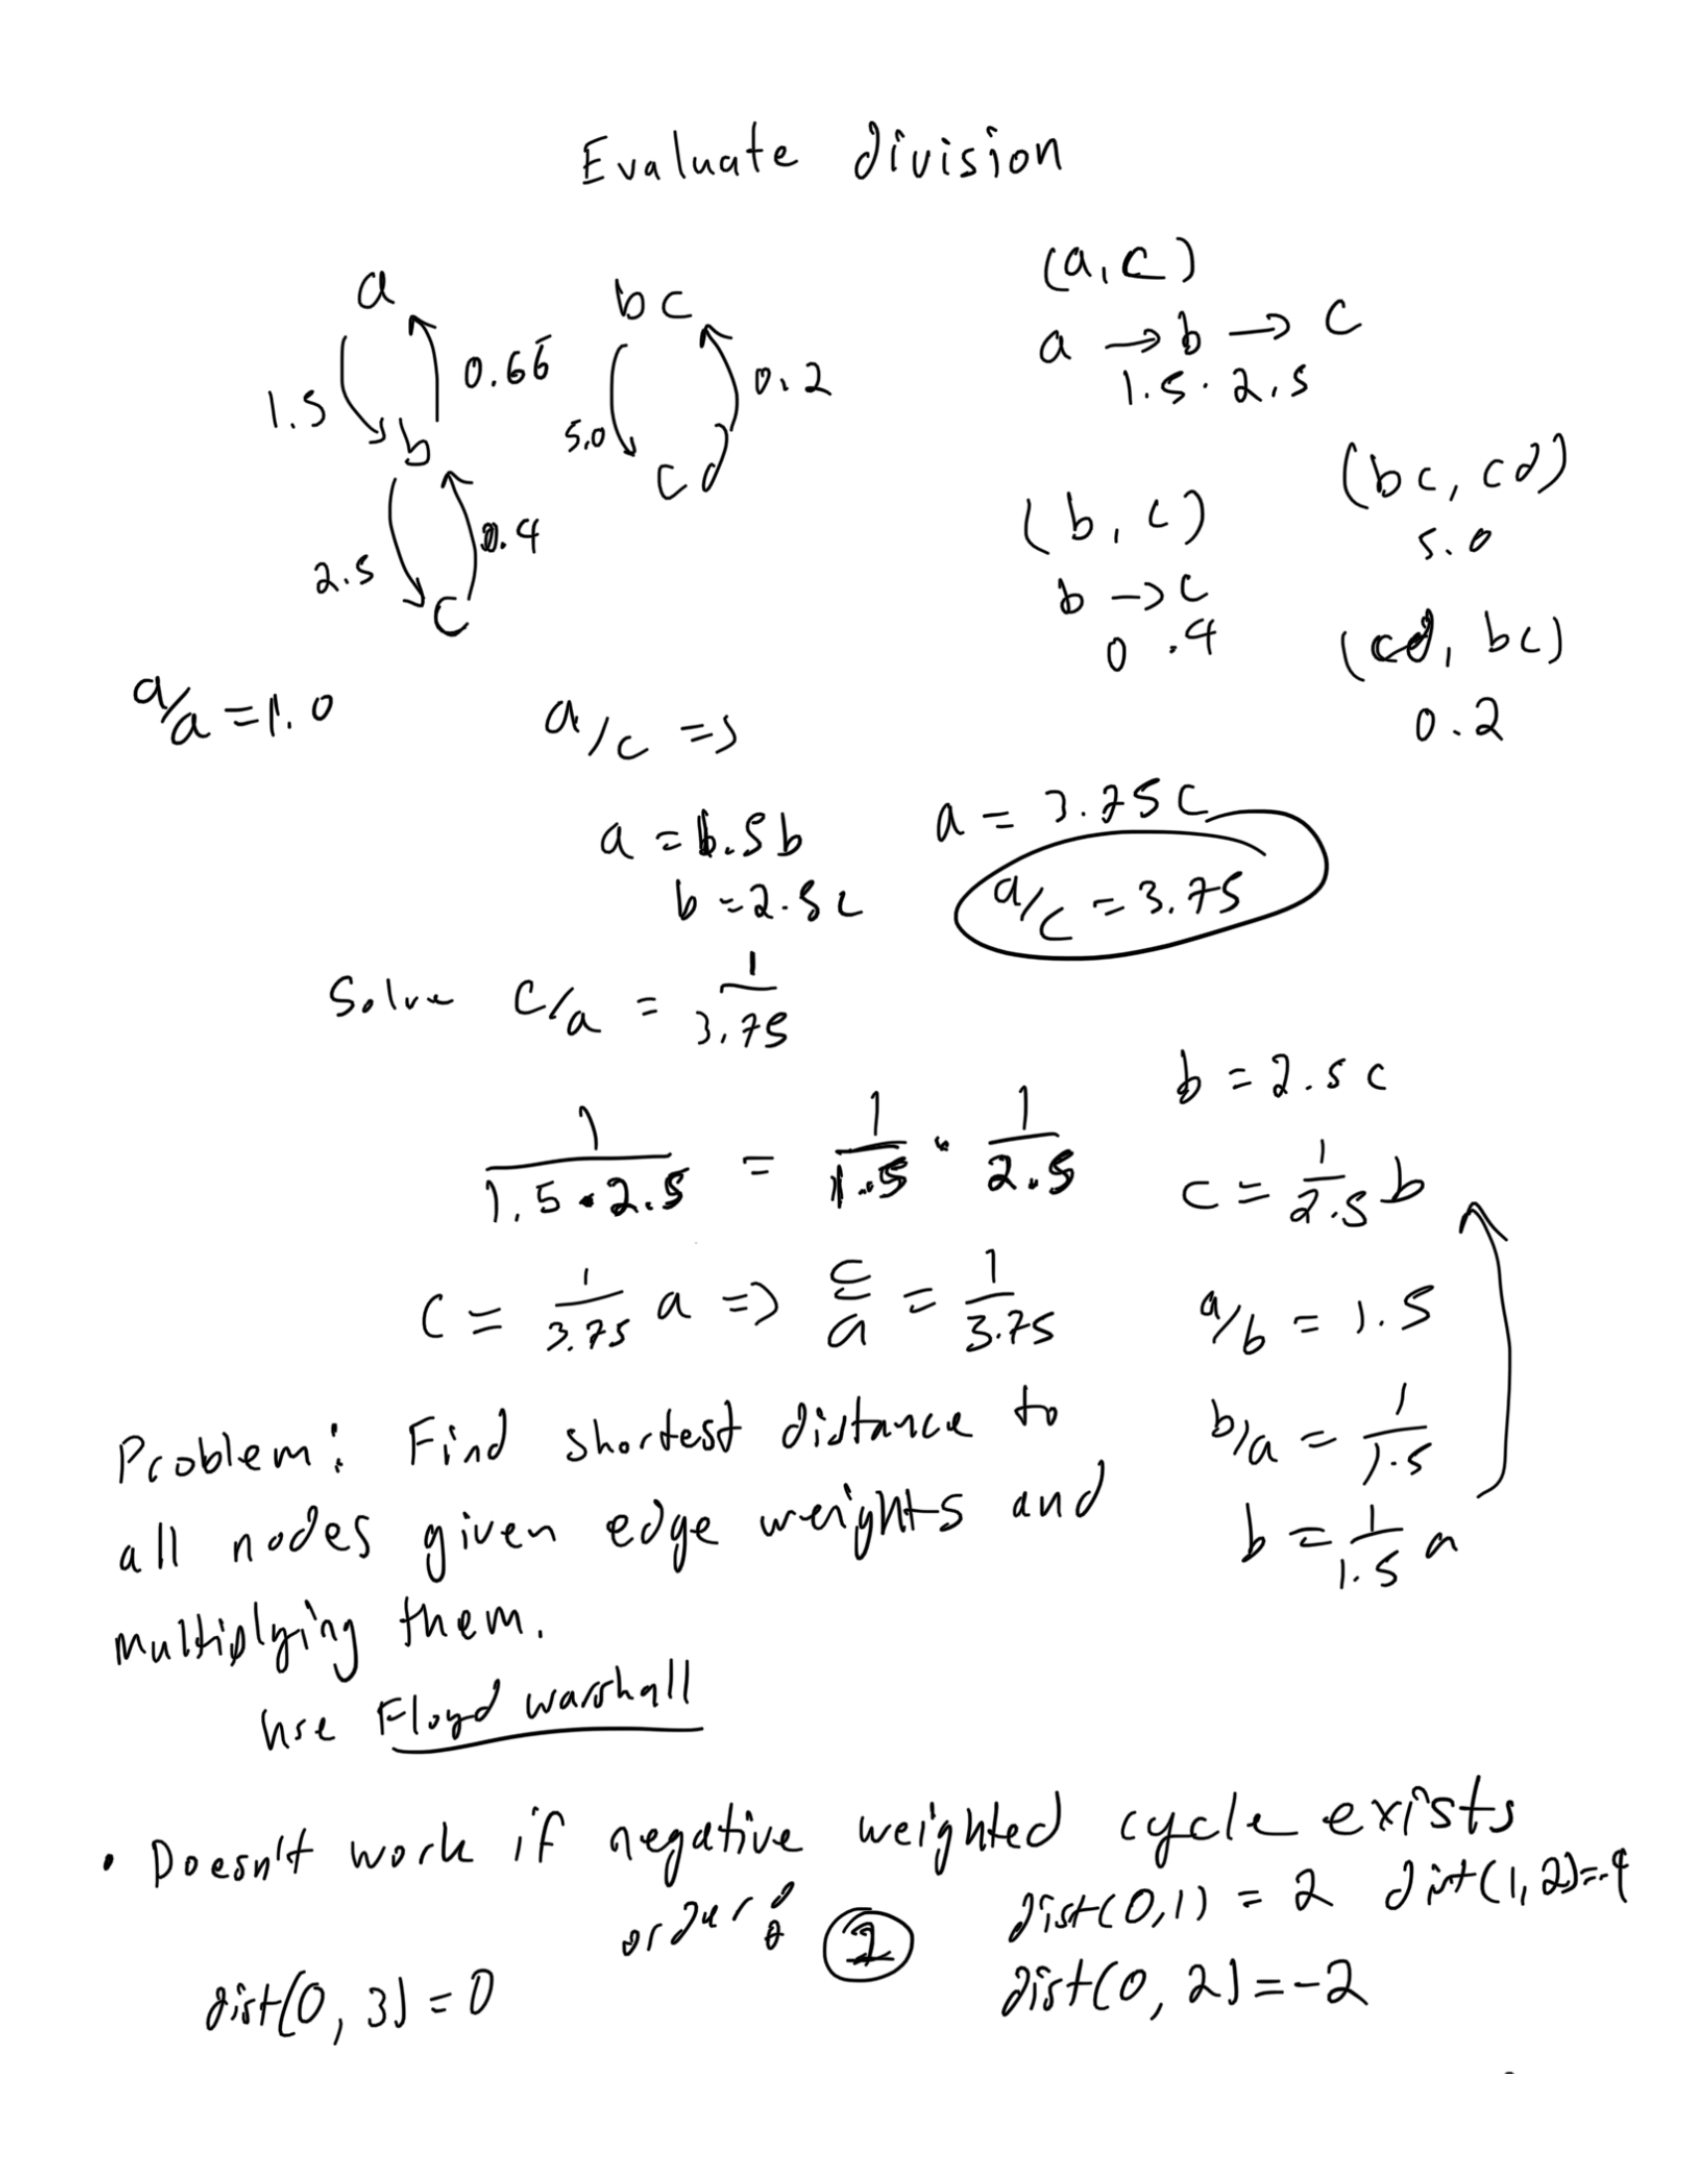 Evaluate division
a
bc
(a, c)
1.5
0.66̅
5.0
0.2
a → b → c
1.5 · 2.5
b
cd
(bc, cd)
5.0
2.5
0.4
(b, c)
b → c
0.4
c
(cd, bc)
0.2
a/a = 1.0
a/c =>
a = 1.5b
b = 2.5c
a = 3.75c
a/c = 3.75
Solve c/a = 1/3.75
b = 2.5c
1/(1.5 · 2.5) = 1/1.5 · 1/2.5
c = 1/2.5 b
c = 1/3.75 a => c/a = 1/3.75
a/b = 1.5
b/a = 1/1.5
b = 1/1.5 a
Problem: Find shortest distance to
all nodes given edge weights and
multiplying them.
use Floyd warshall
• Doesn't work if negative weighted cycle exists
dist(0,1) = 2 dist(1,2)=-4
2
dist(0, 3) = 0
dist(0, 2) = -2